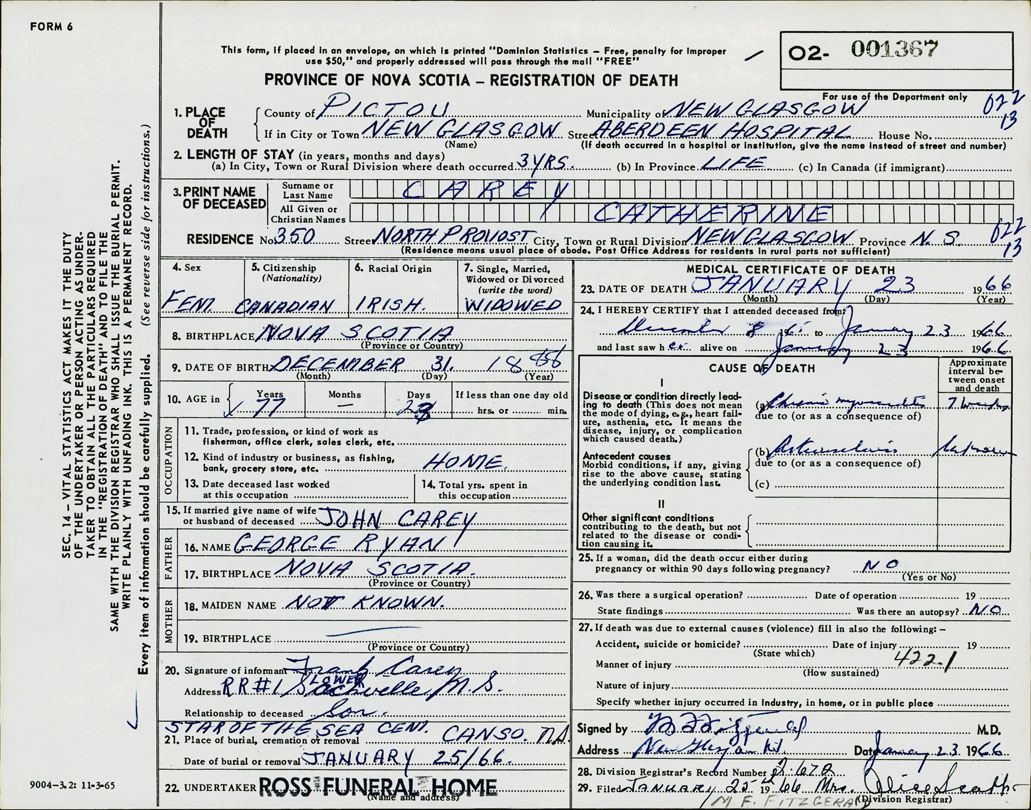 FORM 6
This form, if placed in an envelope, on which is printed "Dominion Statistics – Free, penalty for improper
use $50," and properly addressed will pass through the mail "FREE"
O2- 001367
PROVINCE OF NOVA SCOTIA – REGISTRATION OF DEATH
For use of the Department only
1. PLACE OF DEATH
County of PICTOU Municipality of NEW GLASGOW 022
If in City or Town NEW GLASGOW Street ABERDEEN HOSPITAL House No. 13
(Name) (If death occurred in a hospital or institution, give the name instead of street and number)
2. LENGTH OF STAY (in years, months and days)
(a) In City, Town or Rural Division where death occurred 3 YRS. (b) In Province LIFE (c) In Canada (if immigrant)
3. PRINT NAME OF DECEASED
Surname or Last Name CAREY
All Given or Christian Names CATHERINE
RESIDENCE No. 350 Street NORTH PROVOST City, Town or Rural Division NEW GLASGOW Province N.S. 022
(Residence means usual place of abode. Post Office Address for residents in rural parts not sufficient) 13
4. Sex FEM.
5. Citizenship (Nationality) CANADIAN
6. Racial Origin IRISH.
7. Single, Married, Widowed or Divorced (write the word) WIDOWED
8. BIRTHPLACE NOVA SCOTIA
(Province or Country)
9. DATE OF BIRTH DECEMBER 31. 18
(Month) (Day) (Year)
10. AGE in Years 77 Months — Days If less than one day old hrs. or min.
OCCUPATION
11. Trade, profession, or kind of work as
fisherman, office clerk, sales clerk, etc.
12. Kind of industry or business, as fishing,
bank, grocery store, etc. HOME.
13. Date deceased last worked
at this occupation
14. Total yrs. spent in
this occupation
15. If married give name of wife
or husband of deceased JOHN CAREY
FATHER
16. NAME GEORGE RYAN
17. BIRTHPLACE NOVA SCOTIA.
(Province or Country)
MOTHER
18. MAIDEN NAME NOT KNOWN.
19. BIRTHPLACE
(Province or Country)
20. Signature of informant Frank Carey
Address RR#1 LOWER Sackville, N.S.
Relationship to deceased Son.
STAR OF THE SEA CEM. CANSO. N.S.
21. Place of burial, cremation or removal
Date of burial or removal JANUARY 25/66.
22. UNDERTAKER ROSS FUNERAL HOME
(Name and address)
MEDICAL CERTIFICATE OF DEATH
23. DATE OF DEATH JANUARY 23 1966
(Month) (Day) (Year)
24. I HEREBY CERTIFY that I attended deceased from
December 8 to January 23 1966
and last saw her alive on January 23 1966
CAUSE OF DEATH
Approximate interval between onset and death
I
Disease or condition directly leading to death (This does not mean the mode of dying, e.g., heart failure, asthenia, etc. It means the disease, injury, or complication which caused death.)
(a) Chronic myocarditis 7 weeks
due to (or as a consequence of)
Antecedent causes
Morbid conditions, if any, giving rise to the above cause, stating the underlying condition last.
(b)
due to (or as a consequence of)
(c)
II
Other significant conditions
contributing to the death, but not related to the disease or condition causing it.
25. If a woman, did the death occur either during
pregnancy or within 90 days following pregnancy? NO
(Yes or No)
26. Was there a surgical operation? Date of operation 19
State findings Was there an autopsy? NO
27. If death was due to external causes (violence) fill in also the following: –
Accident, suicide or homicide? Date of injury 19
(State which) 422-1
Manner of injury
(How sustained)
Nature of injury
Specify whether injury occurred in Industry, in home, or in public place
Signed by M.D.
Address Date January 23 1966
28. Division Registrar's Record Number
29. Filed JANUARY 25 1966 Mrs. Alice
M F FITZGERA (Division Registrar)
SEC. 14 – VITAL STATISTICS ACT MAKES IT THE DUTY
OF THE UNDERTAKER OR PERSON ACTING AS UNDER-
TAKER TO OBTAIN ALL THE PARTICULARS REQUIRED
IN THE "REGISTRATION OF DEATH" AND TO FILE THE
SAME WITH THE DIVISION REGISTRAR WHO SHALL ISSUE THE BURIAL PERMIT.
WRITE PLAINLY WITH UNFADING INK. THIS IS A PERMANENT RECORD.
Every item of information should be carefully supplied. (See reverse side for instructions.)
9004-3.2: 11-3-65